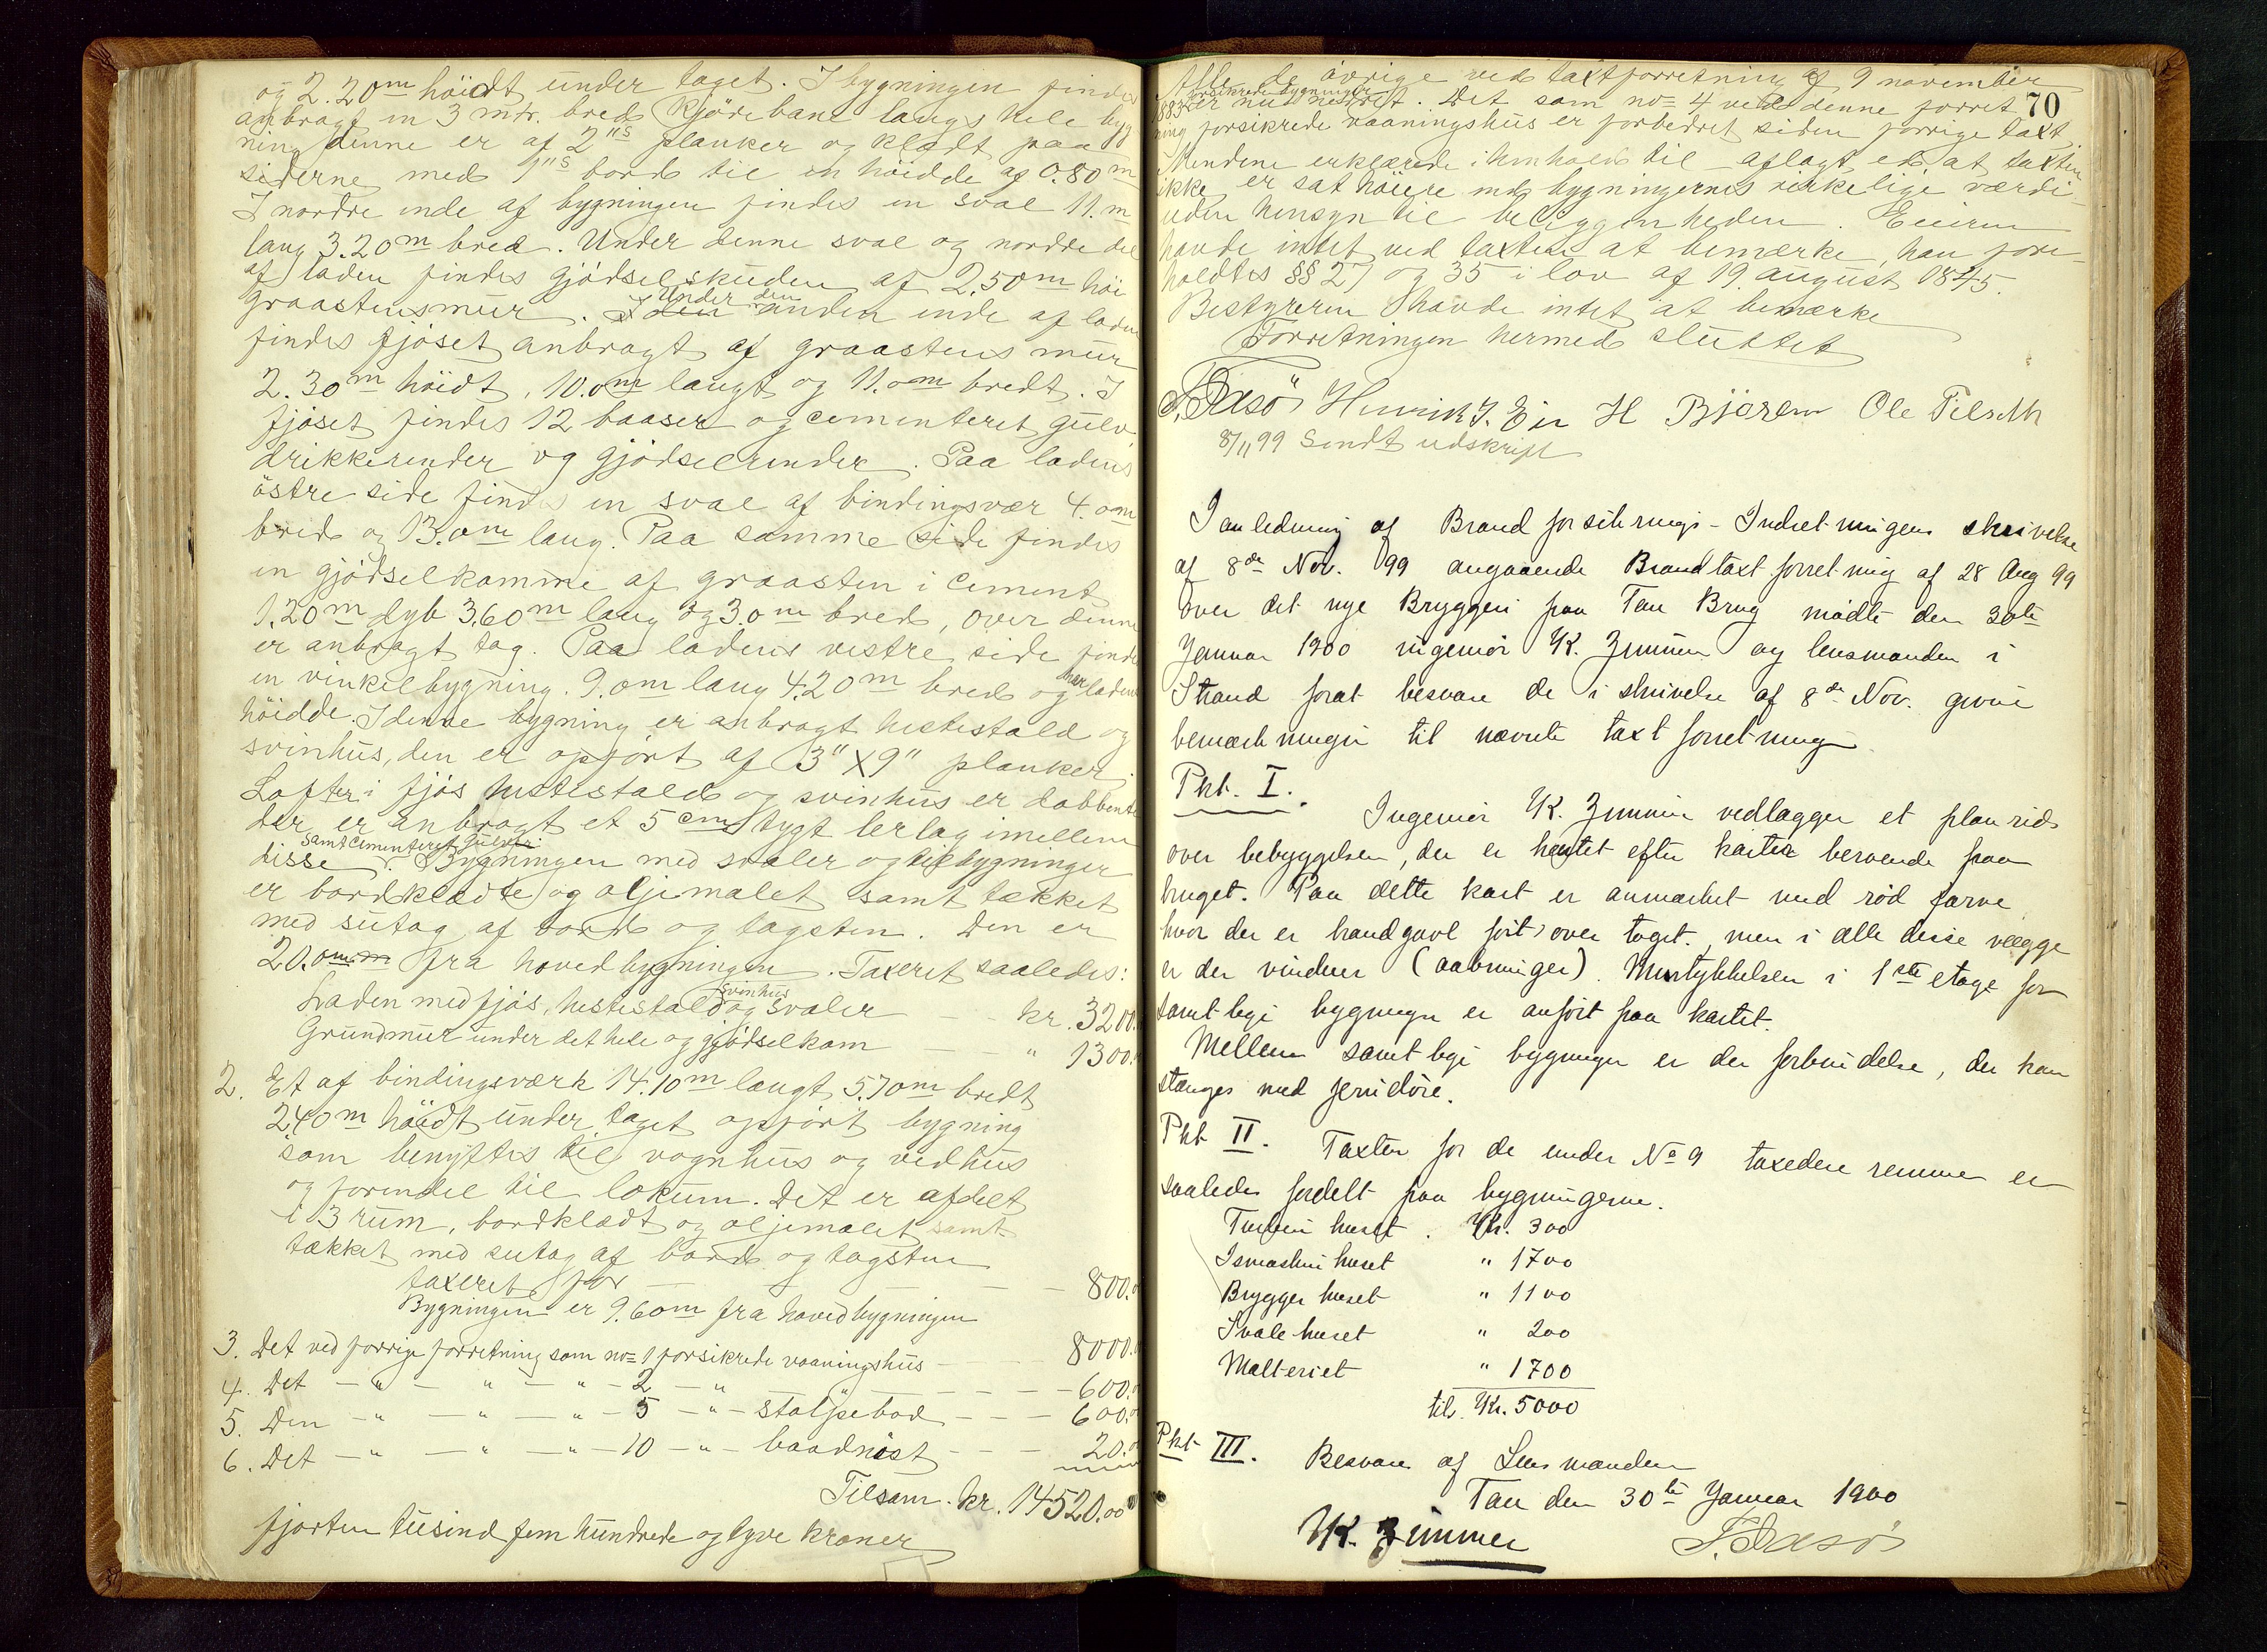 og 2.20m höidt under taget. I bygningen findes
anbragt en 3 mtr. bred kjörebane langs hele byg-
ning denne er af 2"s planker og klædt paa
siderne med 1"s bord til en höidde af 0.80 m
I nordre ende af bygningen findes en sval 11.m
lang 3.20m bred. Under denne sval og nordre del
af laden findes gjödselskuden af 2,50m höi
graastensmur. I den Under den anden ende af laden
findes fjöset anbragt af graastens mur
2.30m höidt, 10.0m langt og 11.0m bredt. I
fjöset findes 12 baaser og cementeret gulv,
drikkerender og gjödselrender. Paa ladens
östre side findes en sval af bindingsvær 4.0m
bred og 13.0m lang. Paa samme side findes
en gjödselkamme af graasten i cement
1.20m dyb 3,60m lang og 3.0m bred, over denne
er anbragt tag. Paa ladens vestre side findes
en vinkelbygning. 9.0m lang 4.20m bred og har ladens
höidde. I denne bygning er anbragt hestestald og
svinhus, den er opfört af 3" X 9" planker.
Lofter i fjös hestestald og svinhus er dobbente
der er anbragt et 5 cm tygt lerlag imellem
disse samt cementeret gulver. Bygningen med svaler og tilbygninger
er bordklædte og oljemalet samt tækket
med sutag af bord og tagsten. Den er
20.0m fra hovedbygningen. Taxeret saaledes:
Laden med fjös, hestestald svinhus og svaler - - kr. 3200.
Grundmur under det hele og gjödselkam - - " 1300.
2. Et af bindingsværk 14.10m langt 5.70m bredt
2.40m höidt under taget opfört bygning
som benyttes til vognhus og vedhus
og forendel til lokum. Det er afdelt
i 3 rum, bordklædt og oljemalet samt
tækket med sutag af bord og tagsten
taxeret for - - - 800.
Bygningen er 9.60m fra hovedbygningen
3. Det ved forrige forretning som no= 1 forsikrede vaaningshus - - 8000.
4. Det - " - " - " - 2 - " - - - - 600.
5. Den - " - " - " - 5 - " - stolpebod - - - 600.
6. Det - " - " - " - 10 - " - baadnöst - - - 20.
Tilsam. kr. 14520.00
fjorten tusind fem hundrede og tyve kroner
70
Alle de övrige ved taxtforretning af 9 november
1883 forsikrede bygninger er nu nedrevet. Det som no= 4 ved denne forret-
ning forsikrede vaaningshus er forbedret siden forrige taxt.
Mændene erklærede i henhold til aflagt ed at taxten
ikke er sat höiere end bygningernes virkelige værdi
uden hensyn til beliggenheden. Eieren
havde intet ved taxten at bemærke, han fore-
holdtes §§ 27 og 35 i lov af 19. august 1845.
Bestyreren havde intet at bemærke
Forretningen hermed sluttet
Henrik J. Eie H Bjøren Ole Tilseth
8/11 99 Sendt udskrift
I anledning af Brandforsikrings-Indretningens skrivelse
af 8de Nov. 99 angaaende Brandtaxtforretning af 28 Aug 99
over det nye Bryggeri paa Tau Brug mødte den 30te
Januar 1900 ingeniør K. Zimmer og lensmanden i
Strand forat besvare de i skrivelse af 8de Nov. givne
bemærkninger til nævnte taxtforretning
Pkt. I.
Ingeniør K. Zimmer vedlægger et planrids
over bebyggelsen, der er hentet efter karter beroende paa
bruget. Paa dette kart er anmærket med rød farve
hvor der er brandgavl ført over taget, men i alle disse vægge
er der vinduer (aabninger). Murtykkelsen i 1ste etage for
samtlige bygninger er anført paa kartet.
Mellem samtlige bygninger er der forbindelse, der kan
stænges med jerndøre.
Pkt II. Taxten for de under No 9 taxerede remmer er
saaledes fordelt paa bygningerne.
Turbinhuset . Kr. 300
Ismaskinhuset " 1700
Bryggerhuset " 1100
Svalehuset " 200
Malteriet " 1700
til Kr. 5000
Pkt III. Besvares af Lensmanden
Tau den 30te Januar 1900
K. Zimmer